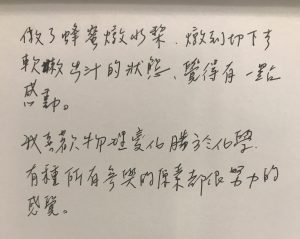 做了蜂蜜燉水梨,燉到切下去
軟嫩出汁的狀態,覺得有一點
感動。
我喜歡物理變化勝於化學,
有種所有參與的原素都很努力的
感覺。